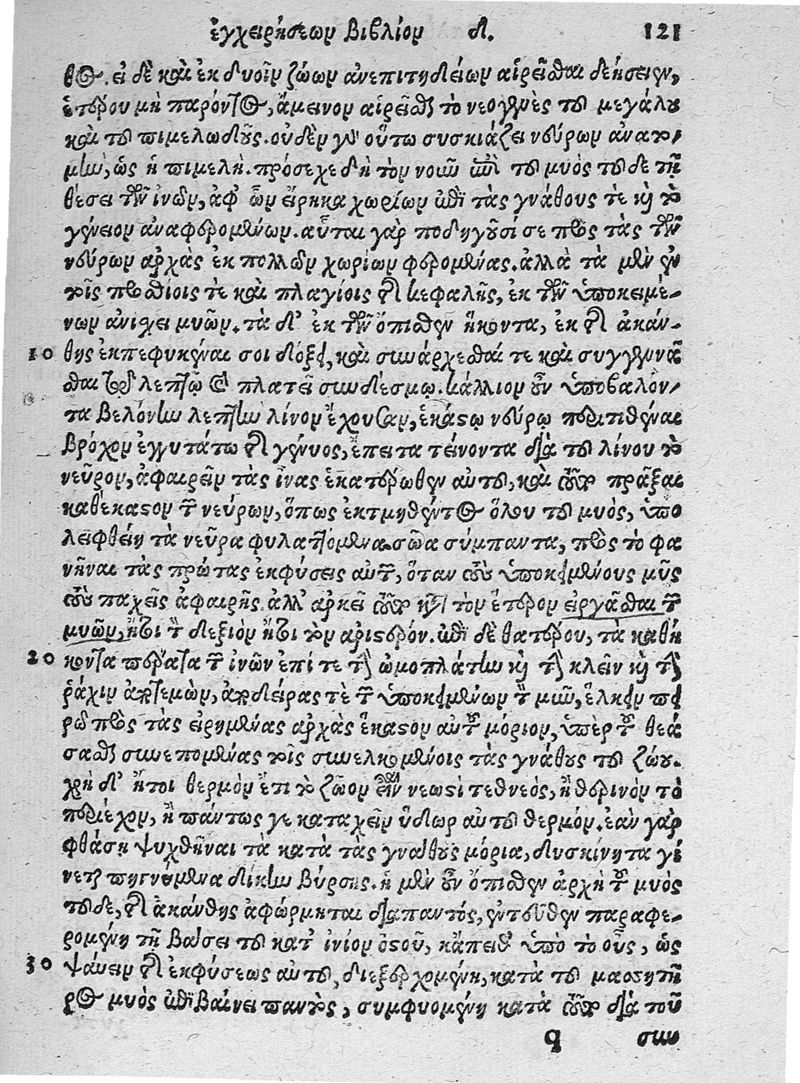 ἐγχειρήσεων βιβλίον δ. 121
θος. εἰ δὲ καὶ ἐκ δυοῖν ζώων ἀνεπιτηδείων αἱρεῖσθαι δεήσειεν,
ἑτέρου μὴ παρόντος, ἄμεινον αἱρεῖσθαι τὸ νεογενὲς τοῦ μεγάλου
καὶ τοῦ πιμελώδους. οὐδὲν γὰρ οὕτω συσκιάζει νεύρων ἀνατο-
μὴν, ὡς ἡ πιμελή. πρόσεχε δὴ τὸν νοῦν ἐπὶ τοῦ μυὸς τοῦδε τῇ
θέσει τῶν ἰνῶν, ἀφ’ ὧν εἴρηκα χωρίων ἐπὶ τὰς γνάθους τε καὶ τὸ
γένειον ἀναφερομένων. αὗται γὰρ ποδηγοῦσί σε πρὸς τὰς τῶν
νεύρων ἀρχὰς ἐκ πολλῶν χωρίων φερομένας. ἀλλὰ τὰ μὲν ἐν
τοῖς προσθίοις τε καὶ πλαγίοις τῆς κεφαλῆς, ἐκ τῶν ὑποκειμέ-
νων ἀνίχει μυῶν. τὰ δ’ ἐκ τῶν ὄπισθεν ἥκοντα, ἐκ τῆς ἀκάν-
10 θης ἐκπεφυκέναι σοι δόξει, καὶ συνάρχεσθαί τε καὶ συγγεννᾶ
σθαι τῷ λεπτῷ καὶ πλατεῖ συνδέσμῳ. κάλλιον οὖν ὑποβαλόν-
τα βελόνην λεπτὴν λίνον ἔχουσαν, ἑκάστῳ νεύρῳ περιτιθέναι
βρόχον ἐγγυτάτω τῆς γένυος, ἔπειτα τείνοντα διὰ τοῦ λίνου τὸ
νεῦρον, ἀφαιρεῖν τὰς ἶνας ἑκατέρωθεν αὐτοῦ, καὶ τοῦτο πρᾶξαι
καθ’ ἕκαστον τῶν νεύρων, ὅπως ἐκτμηθέντος ὅλου τοῦ μυὸς, ὑπο
λειφθείη τὰ νεῦρα φυλαττόμενα σῶα σύμπαντα, πρὸς τὸ φα
νῆναι τὰς πρώτας ἐκφύσεις αὐτῶν, ὅταν τοὺς ὑποκειμένους μῦς
τοὺς παχεῖς ἀφαιρῇς. ἀλλ’ ἀρκεῖ τοῦτο κατὰ τὸν ἕτερον εἰργάσθαι τῶν
μυῶν, ἤτοι τὸν δεξιὸν ἤτοι τὸν ἀριστερόν. ἐπὶ δὲ θατέρου, τὰ καθή
20 κοντα πέρατα τῶν ἰνῶν ἐπί τε τὴν ὠμοπλάτην καὶ τὴν κλεῖν καὶ τὴν
ῥάχιν ἀποτεμὼν, ἀποδείρας τε τῶν ὑποκειμένων τὸν μῦν, ἕλκειν πει
ρῶ πρὸς τὰς εἰρημένας ἀρχὰς ἕκαστον αὐτοῦ μόριον, ὑπὲρ τοῦ θεά
σασθαι συνεπομένας τοῖς συνελκομένοις τὰς γνάθους τοῦ ζώου.
χρὴ δ’ ἤτοι θερμὸν ἔτι τὸ ζῶον εἶναι νεωστὶ τεθνεὸς, ἢ θερινὸν τὸ
περιέχον, ἢ πάντως γε καταχεῖν ὕδωρ αὐτοῦ θερμόν. ἐὰν γὰρ
φθάσῃ ψυχθῆναι τὰ κατὰ τὰς γνάθους μόρια, δυσκίνητα γί
νεται πηγνύμενα δίκην βύρσης. ἡ μὲν οὖν ὄπισθεν ἀρχὴ τοῦ μυὸς
τοῦδε, τῆς ἀκάνθης ἀφώρμηται διαπαντός, ἐντεῦθεν παραφε-
ρομένη τῇ βάσει τοῦ κατ’ ἰνίον ὀστοῦ, κἄπειθ’ ὑπὸ τὸ οὖς, ὡς
30 ψαύειν τῆς ἐκφύσεως αὐτοῦ, διεξερχομένη, κατὰ τοῦ μασητῆ
ρος μυὸς ἐπιβαίνει παντὸς, συμφυομένη κατὰ τοῦτο διὰ τοῦ
q συν